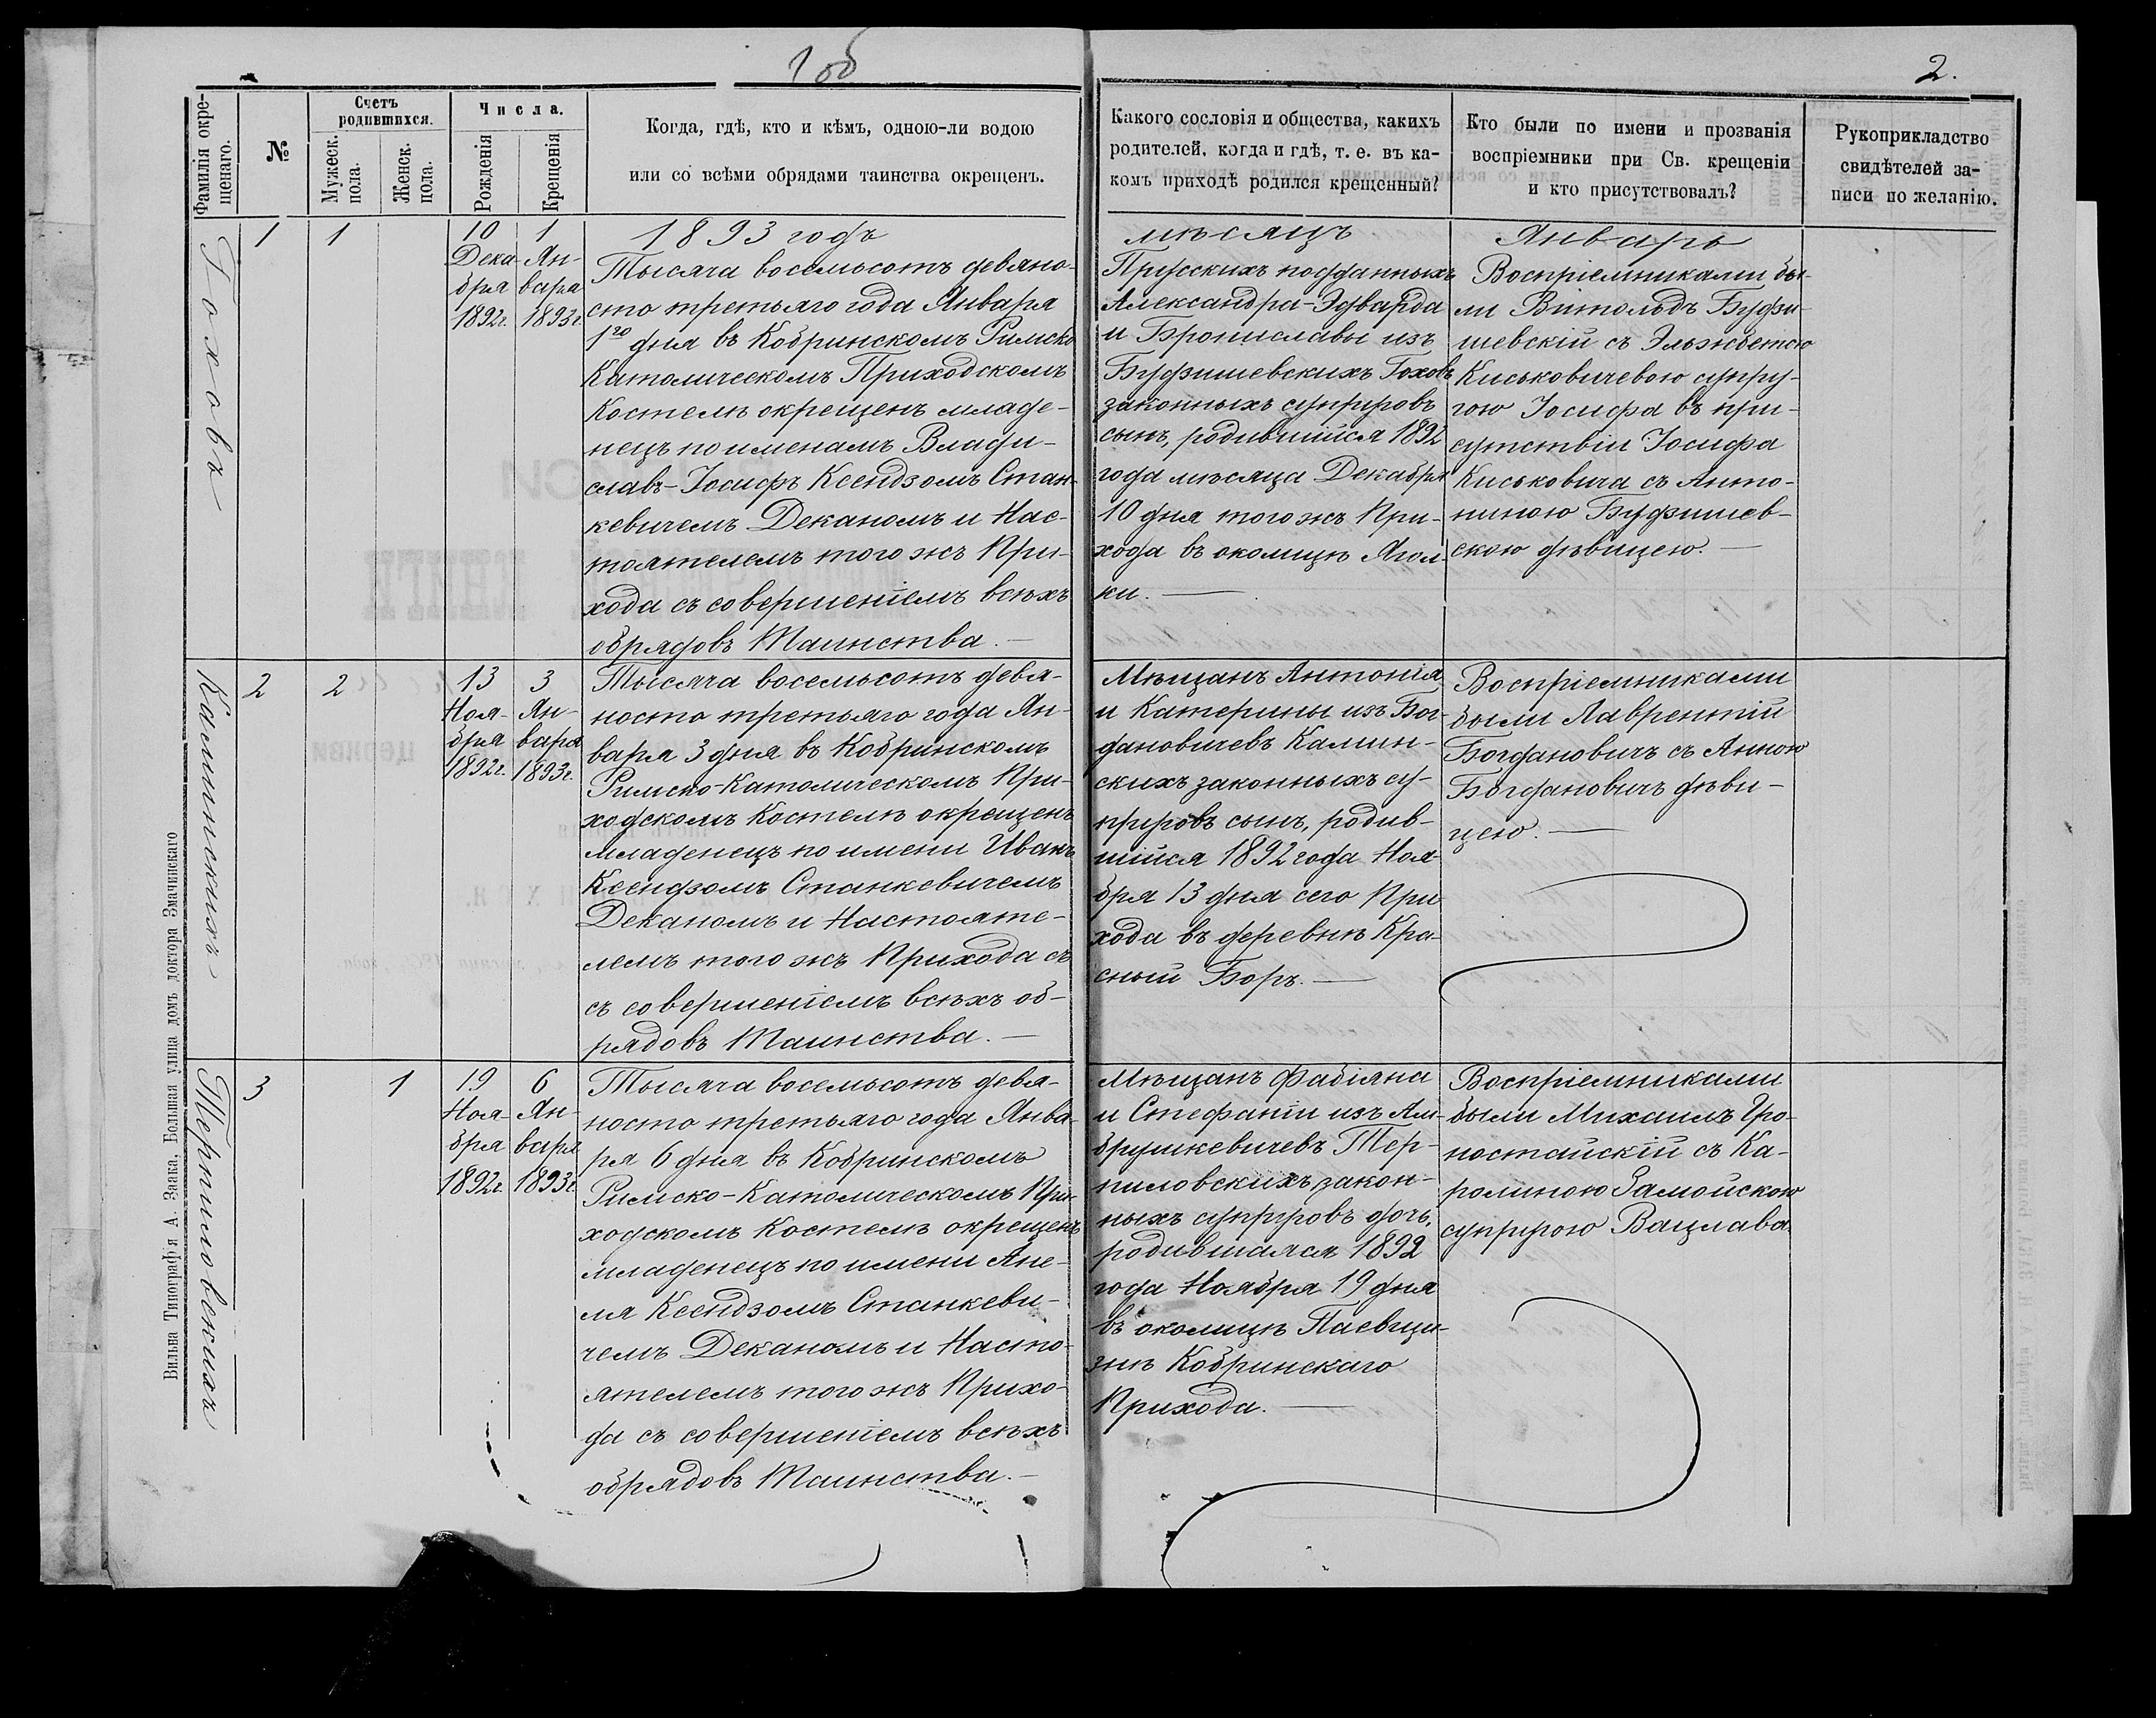 1 об
2.
Фамилія окре-
щенаго.
№
Счетъ
родившихся.
Мужеск.
пола.
Женск.
пола.
Числа.
Рожденія
Крещенія
Когда, гдѣ, кто и кѣмъ, одною-ли водою
или со всѣми обрядами таинства окрещенъ.
Какого сословія и общества, какихъ
родителей, когда и гдѣ, т. е. въ ка-
комъ приходѣ родился крещенный?
Кто были по имени и прозванія
воспріемники при Св. крещеніи
и кто присутствовалъ?
Рукоприкладство
свидѣтелей за-
писи по желанію.
Гоховъ
1
1
10
Дека-
бря
1892г.
1
Ян-
варя
1893г.
1893 годъ
Тысяча восемьсотъ девяно-
сто третьяго года Января
1го дня въ Кобринскомъ Римско
Католическомъ Приходскомъ
Костелѣ окрещенъ младе-
нецъ по именамъ Влади-
славъ-Іосифъ Ксендзомъ Стан-
кевичемъ Деканомъ и Нас-
тоятелемъ того жъ При-
хода съ совершеніемъ всѣхъ
обрядовъ Таинства.—
мѣсяцъ
Прусскихъ подданныхъ
Александра-Эдварда
и Брониславы изъ
Будзишевскихъ Гоховъ
законныхъ супруговъ
сынъ, родившійся 1892
года мѣсяца Декабря
10 дня того жъ При-
хода въ околицѣ Ягол-
ки.—
Январь
Воспріемниками бы-
ли Витольдъ Будзи-
шевскій съ Эльжбетою
Киськовичевою супру-
гою Іосифа въ при-
сутствіи Іосифа
Киськовича съ Анто-
ниною Будзишев-
скою дѣвицею.—
Калиинскихъ
2
2
13
Ноя-
бря
1892г.
3
Ян-
варя
1893г.
Тысяча восемьсотъ девя-
носто третьяго года Ян-
варя 3 дня въ Кобринскомъ
Римско-Католическомъ При-
ходскомъ Костелѣ окрещенъ
младенецъ по имени Иванъ
Ксендзомъ Станкевичемъ
Деканомъ и Настояте-
лемъ того жъ Прихода съ
съ совершеніемъ всѣхъ об-
рядовъ Таинства.—
Мѣщанъ Антонія
и Катерины изъ Бог-
дановичевъ Калин-
скихъ законныхъ су-
пруговъ сынъ, родив-
шійся 1892 года Ноя-
бря 13 дня сего При
хода въ деревнѣ Кра-
сный Боръ.—
Воспріемниками
были Лаврентій
Богдановичъ съ Анною
Богдановичъ дѣви-
цею.—
Терпиловскихъ
3
1
19
Ноя-
бря
1892г.
6
Ян-
варя
1893г.
Тысяча восемьсотъ девя-
носто третьяго года Янва-
ря 6 дня въ Кобринскомъ
Римско-Католическомъ При-
ходскомъ Костелѣ окрещенъ
младенецъ по имени Апе-
ля Ксендзомъ Станкеви-
чемъ Деканомъ и Насто-
ятелемъ того жъ Прихо-
да съ совершеніемъ всѣхъ
обрядовъ Таинства.—
Мѣщанъ Фабіяна
и Стефаніи изъ Ам-
брушкевичевъ Тер-
пиловскихъ закон-
ныхъ супруговъ дочь,
родившаяся 1892
года Ноября 19 дня
въ околицѣ Паевщи-
знѣ Кобринскаго
Прихода.—
Воспріемниками
были Михаилъ Гро-
ностайскій съ Ка-
ролиною Замойскою
супругою Вацлава.
Вильна Типографія А. Зака, Большая улица домъ доктора Змачинскаго